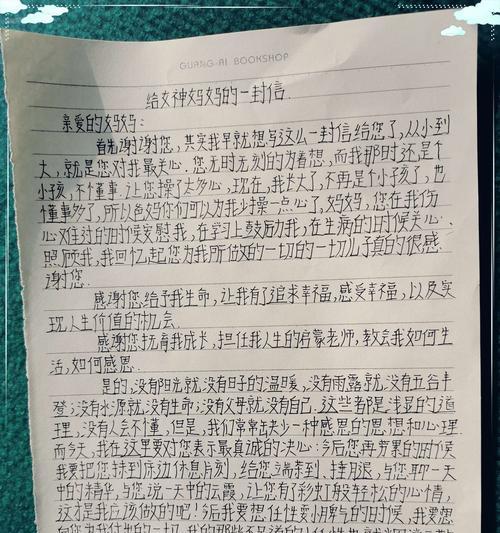 GUANG-AI BOOKSHOP
给女神妈妈的一封信.
亲爱的妈妈:
首先谢谢您,其实我早就想写这么一封信给您了,从小到
大,就是您对我最关心.您无时无刻的为着想,而我那时还是个
小孩,不懂事.让您操了太多心,现在,我长大了,不再是个小孩了,也
懂事多了,所以爸妈你们可以为我少操一点心了,妈妈,您在我伤
心难过的时候安慰我,在学习上鼓励我,在生病的时候关心、
照顾我,我回忆起您为我所做的一切的一切儿子真的很感
谢您.
感谢您给予我生命,让我有了追求幸福,感受幸福,以及实
现人生价值的机会.
感谢您抚育我成长,担任我人生的启蒙老师,教会我如何生
活,如何感恩.
是的,没有阳光就没有日子的温暖,没有雨露就没有五谷丰
登;没有水源就没有生命;没有父母就没有自己.这些都是浅显的道
理,没有人会不懂,但是,我们常常缺少一种感恩的思想和心理
而今天,我在这里要对您表示最真诚的决心:今后您再劳累的时候
我要把您扶到床边休息片刻,给您端茶到、捶腿,与您聊一天
中的精华,与您说一天中的云霞,让您有了彩虹般轻松的心情,
这才是我应该做的吧!今后我要想任性耍小脾气的时候,我要想